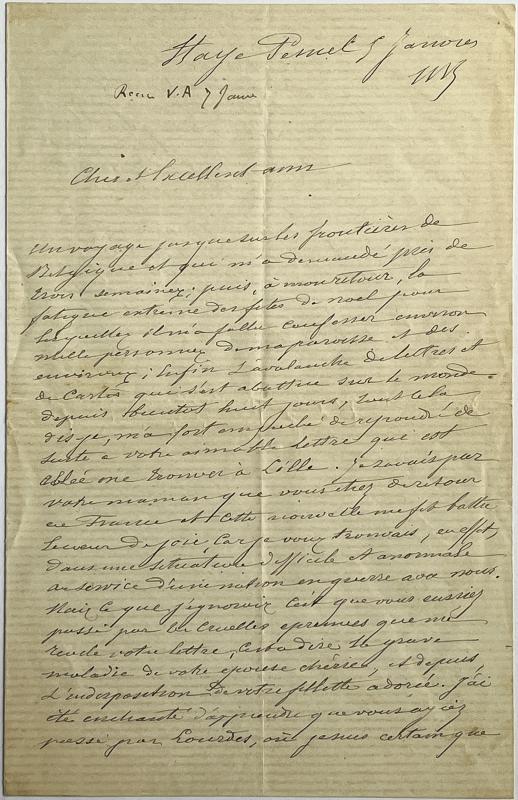 Haye Pesnel 5 Janvier
Recu V.A 7 Janv
Cher et Excellent ami
Un voyage jusque sur les frontières de
Belgique et qui m'a demandé près de
trois semaines; puis, à mon retour, la
fatigue extrême des fêtes de noel pour
lesquelles il m'a fallu confesser environ
mille personnes de ma paroisse et des
environs; Enfin l'avalanche de lettres et
de Cartes qui s'est abattue sur le monde
depuis bientot huit jours, tout cela
dis je, m'a fort empêché de répondre de
suite a votre aimable lettre qui est
allée me trouver à Lille. Je savais par
votre maman que vous étiez de retour
en France et cette nouvelle me fit battre
le coeur de joie, Car je vous trouvais, en effet,
dans une situation difficile et anormale
au service d'une nation en guerre avec nous.
Mais Ce que j'ignorais C'est que vous eussiez
passé par les Cruelles épreuves que me
révèle votre lettre, C'est a dire la grave
maladie de votre épouse chérie, et depuis,
L'indisposition de votre fillette adorée. J'ai
été enchanté d'apprendre que vous ayiez
passé par Lourdes, où je suis certain que